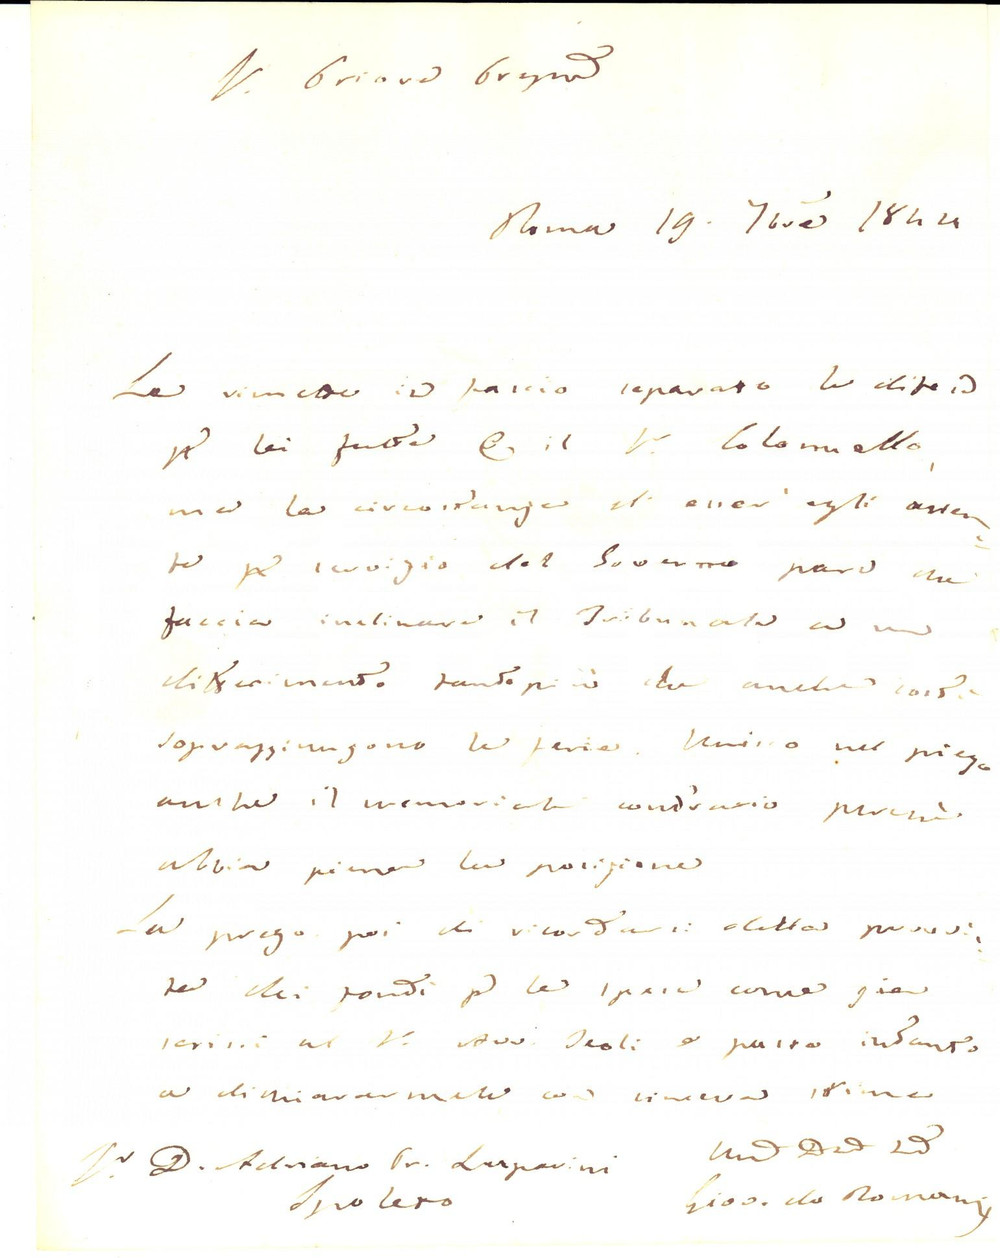 S. Priore
Roma 19. 7bre 1844
Le rimetto in fascio separato le difese
per lei fatte e il S. Colonnello,
ma la circostanza d'esser egli assen=
te per servizio del Governo pare che
faccia inclinare il Tribunale a un
differimento tantopiù che anche costà
sopraggiungono le ferie. Unisco nel piego
anche il memoriale contrario perché
abbia piena la posizione
La prego poi di ricordarsi della provvi=
sta dei fondi per le spese come già
scrissi al S. Avv. Seoli e passo intanto
a dichiararmele con sincera stima
Sr. D. Adriano Pr.
Spoleto
Giov. de Romanis